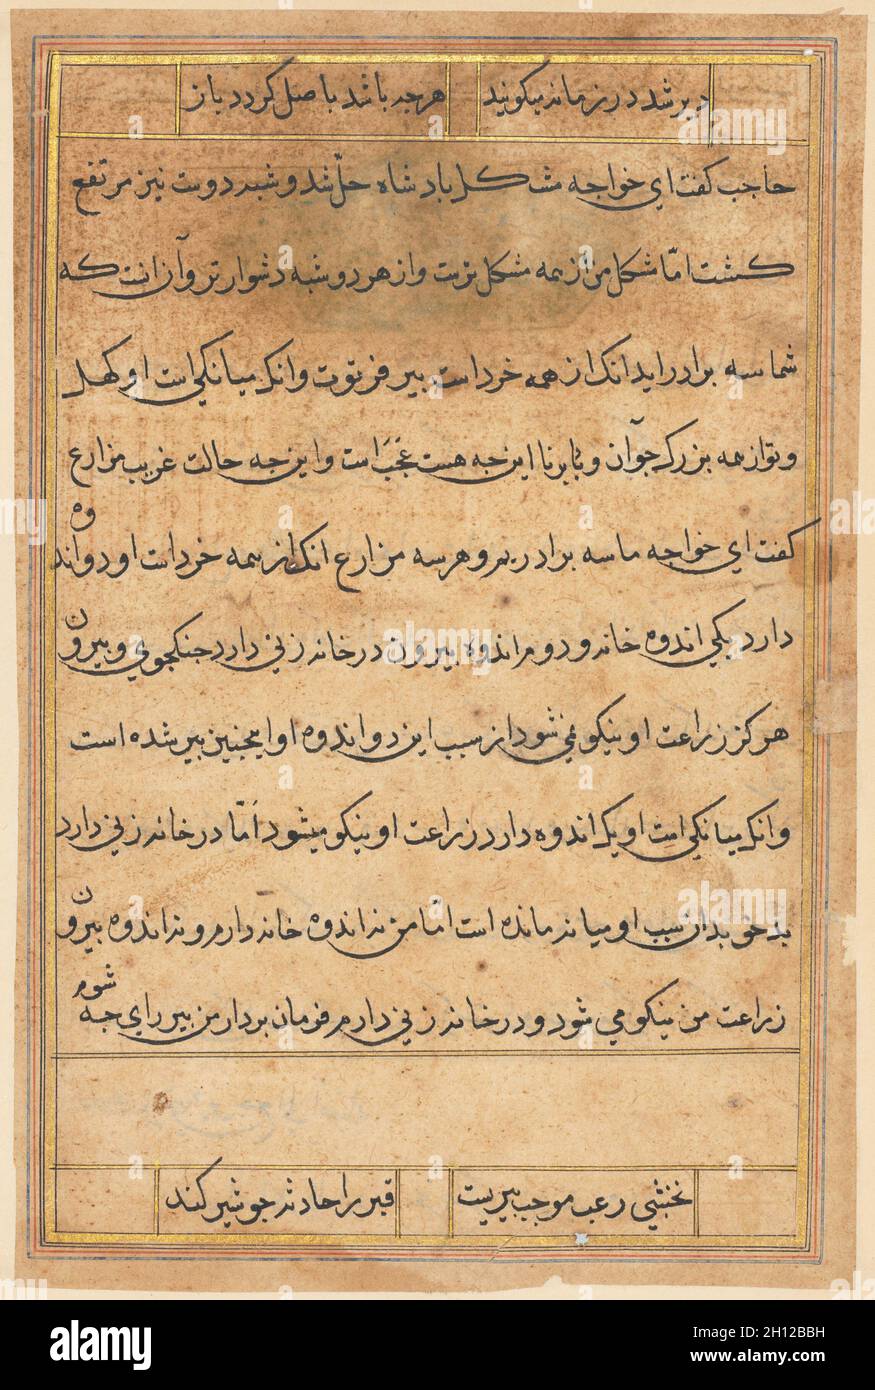 دیر شد در زمانه میکویند هرجه باشد باصل کردد باز
حاجب کفت ای خواجه مشکل بادشاه حلّ شد و شبه دوست نیز مرتفع
کشت امّا مشکل من از همه مشکل ترست و از هر دو شبه دشوارتر و آن انست که
شما سه برادراید انک از همه خردست بیر فرتوت وانک میانکی است او کهل
و تو از همه بزرک جوآن و برنا این جه هست عَجَب است و این جه حالت غریب مزارع
کفت ای خواجه ما سه برادریم و هر سه مزارع انک از همه خردست او دو اندوه
دارد یکی اندوه خانه و دوم اندوه بیرون در خانه زنی دارد جنکجوی و بیرون
هرکز زراعت او نیکو نمی شود از سبب این دو اندوه او ایجنین بیر شده است
وانک میانکی است او یک اندوه دارد زراعت او نیکو میشود اَمّا در خانه زنی دارد
بدخو بدان سبب او میانه مانده است امّا من نه اندوه خانه دارم و نه اندوه بیرون
زراعت من نیکو می شود و در خانه زنی دارم فرمان بردار من بیر رای جه شوم
نخشبی رعب موجب بیریست قیر را حادثه جو شیر کند
alamy
Image ID: 2H12BBH
www.alamy.com